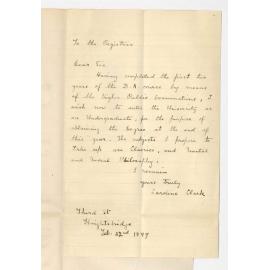 To the Registrar
Dear Sir
Having completed the first two
years of the B.A. course by means
of the Higher Public Examinations, I
wish now to enter the University as
an Undergraduate, for the purpose of
obtaining the Degree at the end of
this year. The subjects I propose to
take up are Classics, and Mental
and Moral Philosophy.
I remain
yours truly
Caroline Clark
Third St
Knightsbridge
Feb. 22nd 1899